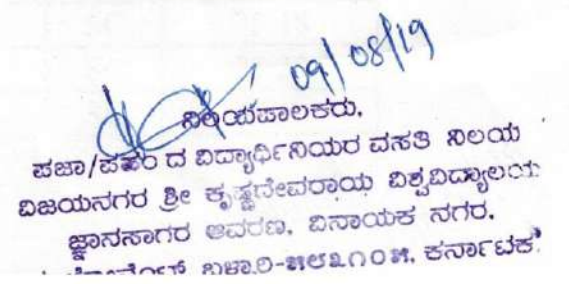 09/08/19
ನಿಲಯಪಾಲಕರು,
ಪಜಾ/ಪಪಂ ದ ವಿದ್ಯಾರ್ಥಿನಿಯರ ವಸತಿ ನಿಲಯ
ವಿಜಯನಗರ ಶ್ರೀ ಕೃಷ್ಣದೇವರಾಯ ವಿಶ್ವವಿದ್ಯಾಲಯ
ಜ್ಞಾನಸಾಗರ ಆವರಣ, ವಿನಾಯಕ ನಗರ,
ಬಳ್ಳಾರಿ-೫೮೩೧೦೫, ಕರ್ನಾಟಕ.